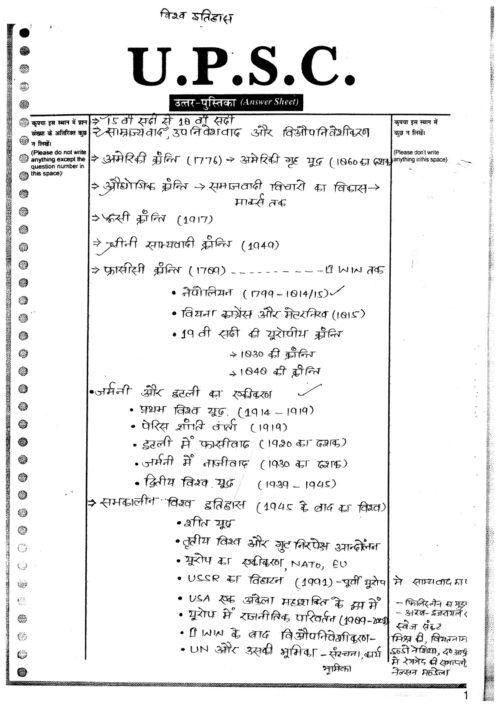 विश्व इतिहास
U.P.S.C.
उत्तर-पुस्तिका (Answer Sheet)
कृपया इस स्थान में प्रश्न
संख्या के अतिरिक्त कुछ
न लिखें।
(Please do not write
anything except the
question number in
this space)
कृपया इस स्थान में
कुछ न लिखें।
(Please don't write
anything in this space)
→ 15 वी सदी से 18 वी सदी
→ साम्राज्यवाद, उपनिवेशवाद और विऔपनिवेशीकरण
→ अमेरिकी क्रान्ति (1776) → अमेरिकी गृह युद्ध (1860 का दशक)
→ औद्योगिक क्रान्ति → समाजवादी विचारों का विकास →
मार्क्स तक
→ रूसी क्रान्ति (1917)
→ चीनी साम्यवादी क्रान्ति (1949)
→ फ्रांसीसी क्रान्ति (1789) ---------- II WW तक
• नेपोलियन (1799-1814/15) ✓
• वियना कांग्रेस और मेटरनिख (1815)
• 19 वी सदी की यूरोपीय क्रान्ति
→ 1830 की क्रान्ति
→ 1848 की क्रान्ति
• जर्मनी और इटली का एकीकरण ✓
• प्रथम विश्व युद्ध (1914-1919)
• पेरिस शांति वार्ता (1919)
• इटली में फासीवाद (1920 का दशक)
• जर्मनी में नाजीवाद (1930 का दशक)
• द्वितीय विश्व युद्ध (1939-1945)
→ समकालीन विश्व इतिहास (1945 के बाद का विश्व)
• शीत युद्ध
• तृतीय विश्व और गुट निरपेक्ष आन्दोलन
• यूरोप का एकीकरण, NATO, EU
• USSR का विघटन (1991) - पूर्वी यूरोप में साम्यवाद का
• USA एक अकेला महाशक्ति के रूप में
• यूरोप में राजनीतिक परिवर्तन (1989-
• II WW के बाद विऔपनिवेशीकरण -
• UN और उसकी भूमिका - संरचना, कार्य
भूमिका
- फिलिस्तीन का मुद्दा
- अरब-इजरायल
स्वेज संकट
मिस्र की, वियतनाम
इंडोनेशिया, द० अफ्री
में रंगभेद की समाप्ती
नेल्सन मंडेला
1